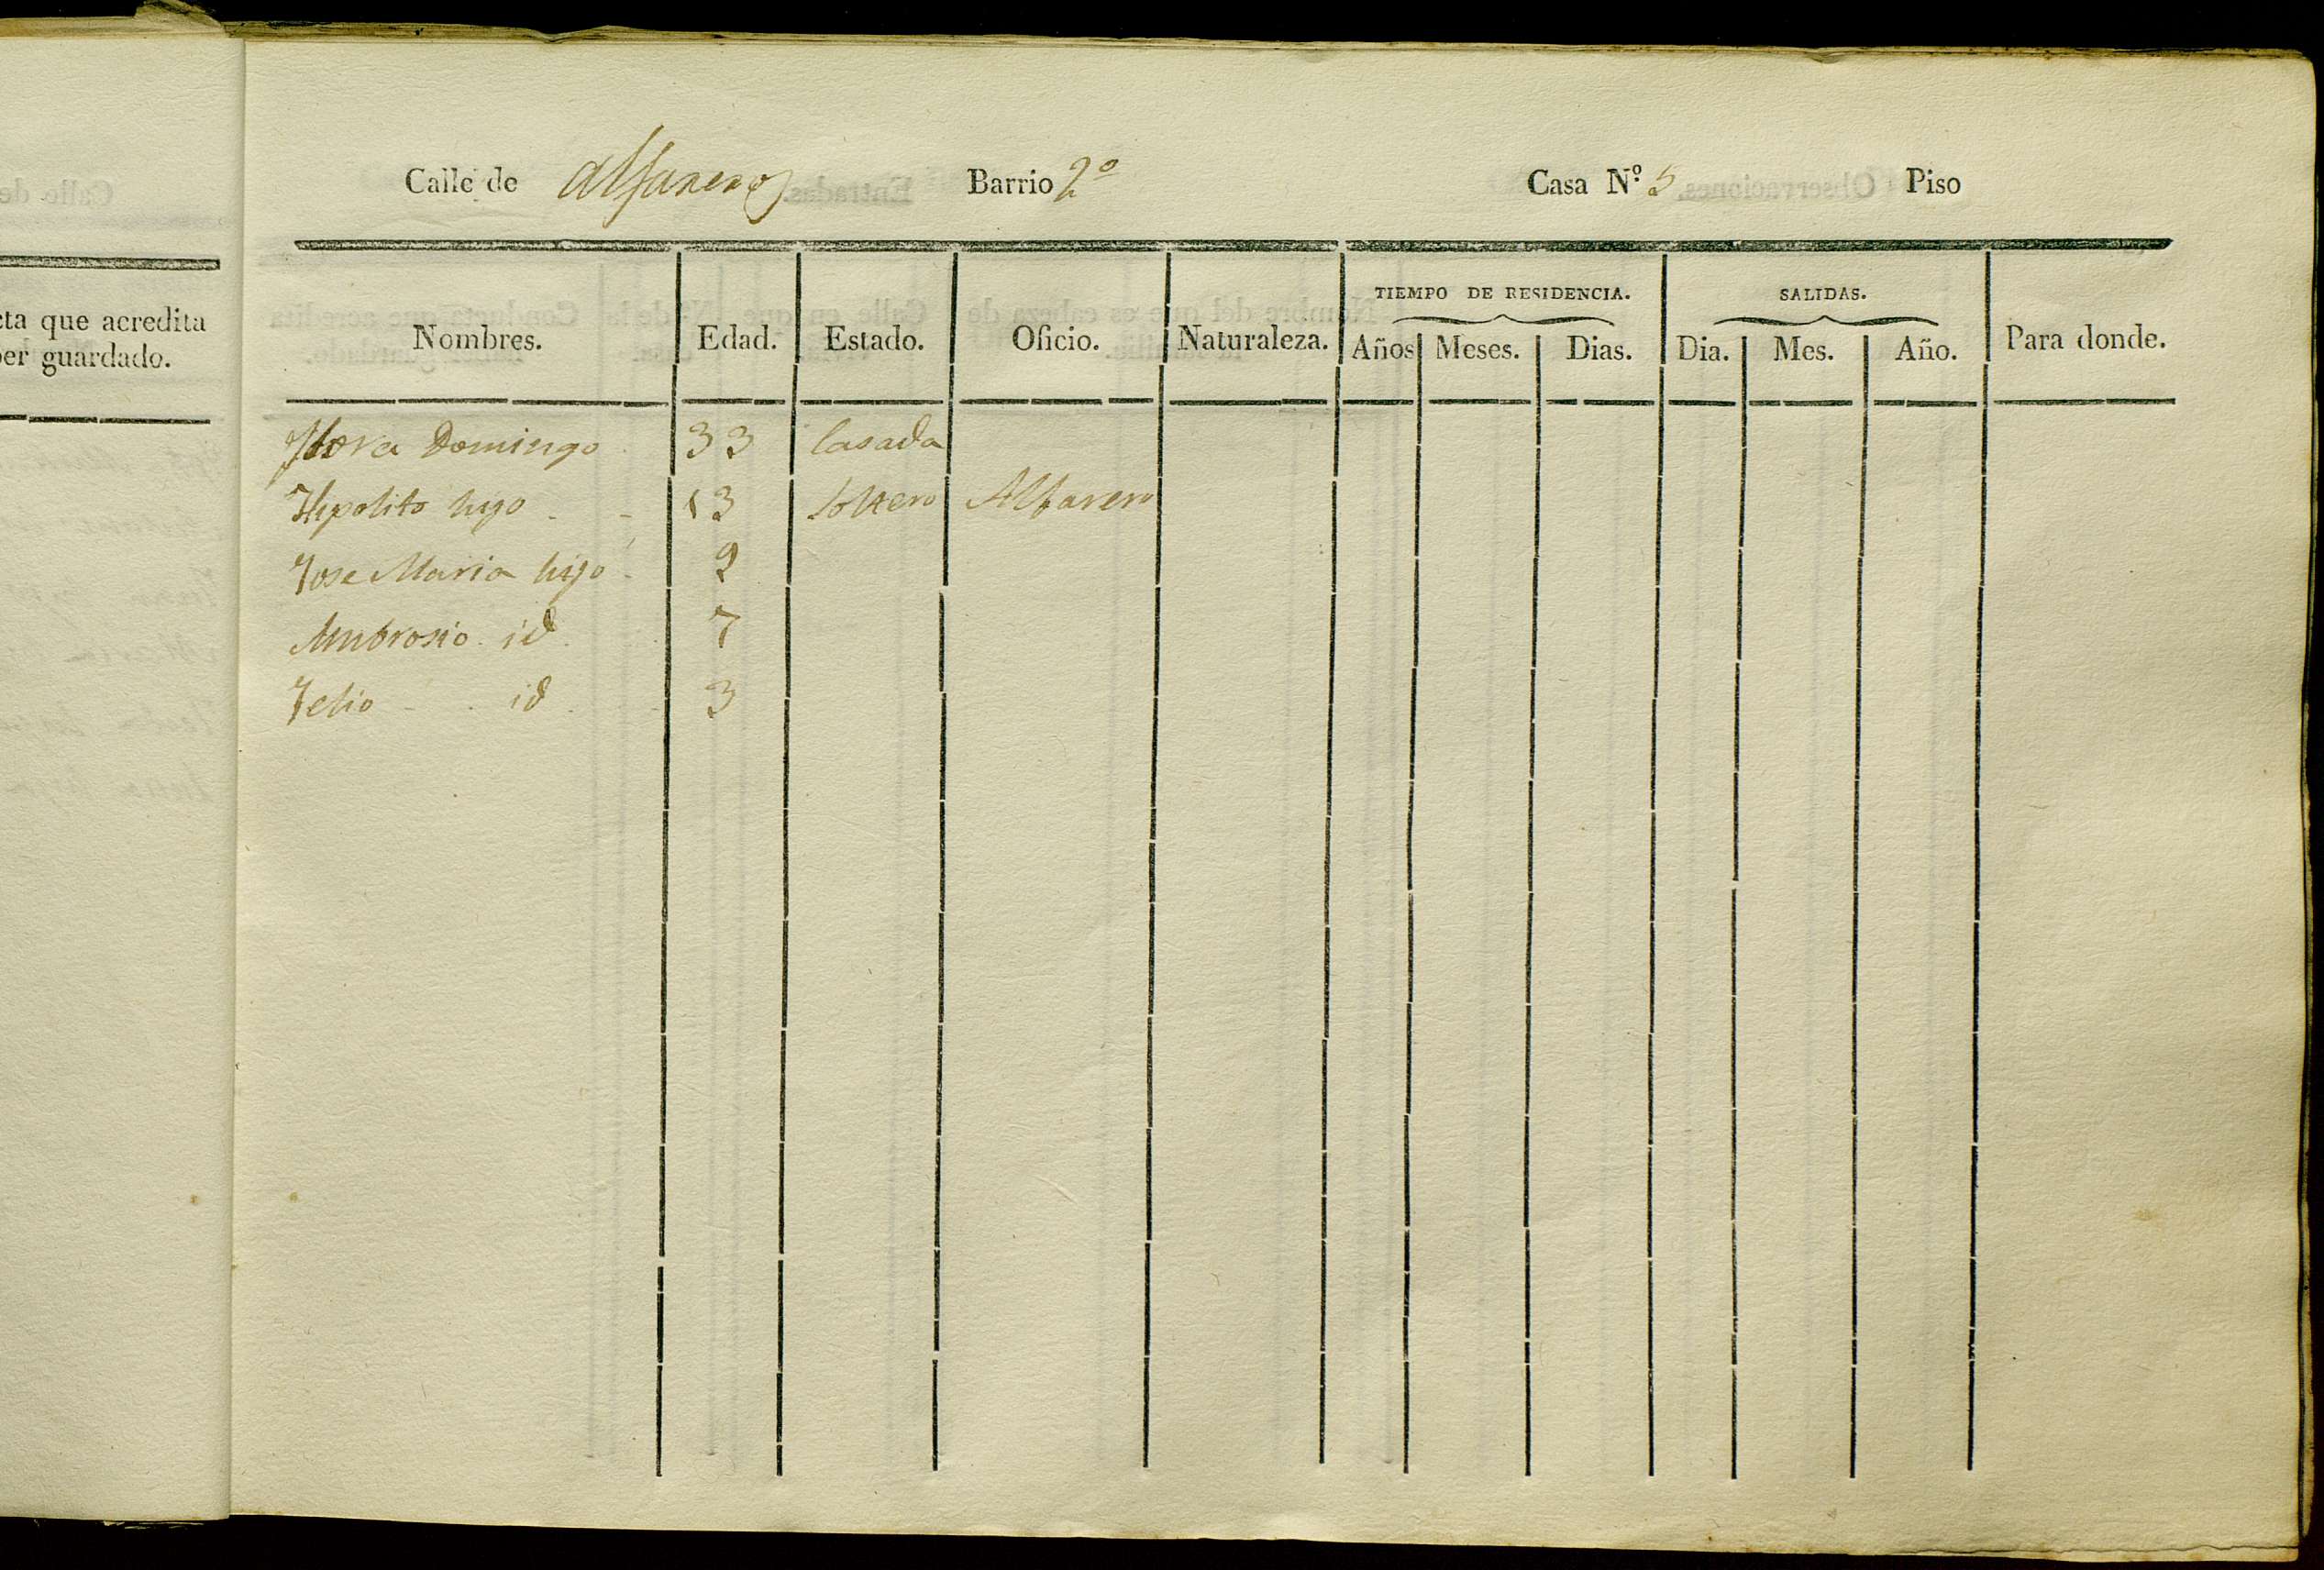 cta que acredita
ber guardado.
Calle de Alfareros Barrio 2º Casa Nº 5 Piso
TIEMPO DE RESIDENCIA. SALIDAS.
Nombres. Edad. Estado. Oficio. Naturaleza. Años Meses. Dias. Dia. Mes. Año. Para donde.
Flora Domingo 33 Casada
Hipolito hijo 13 soltero Alfarero
Jose Maria hijo 9
Ambrosio id 7
id 3